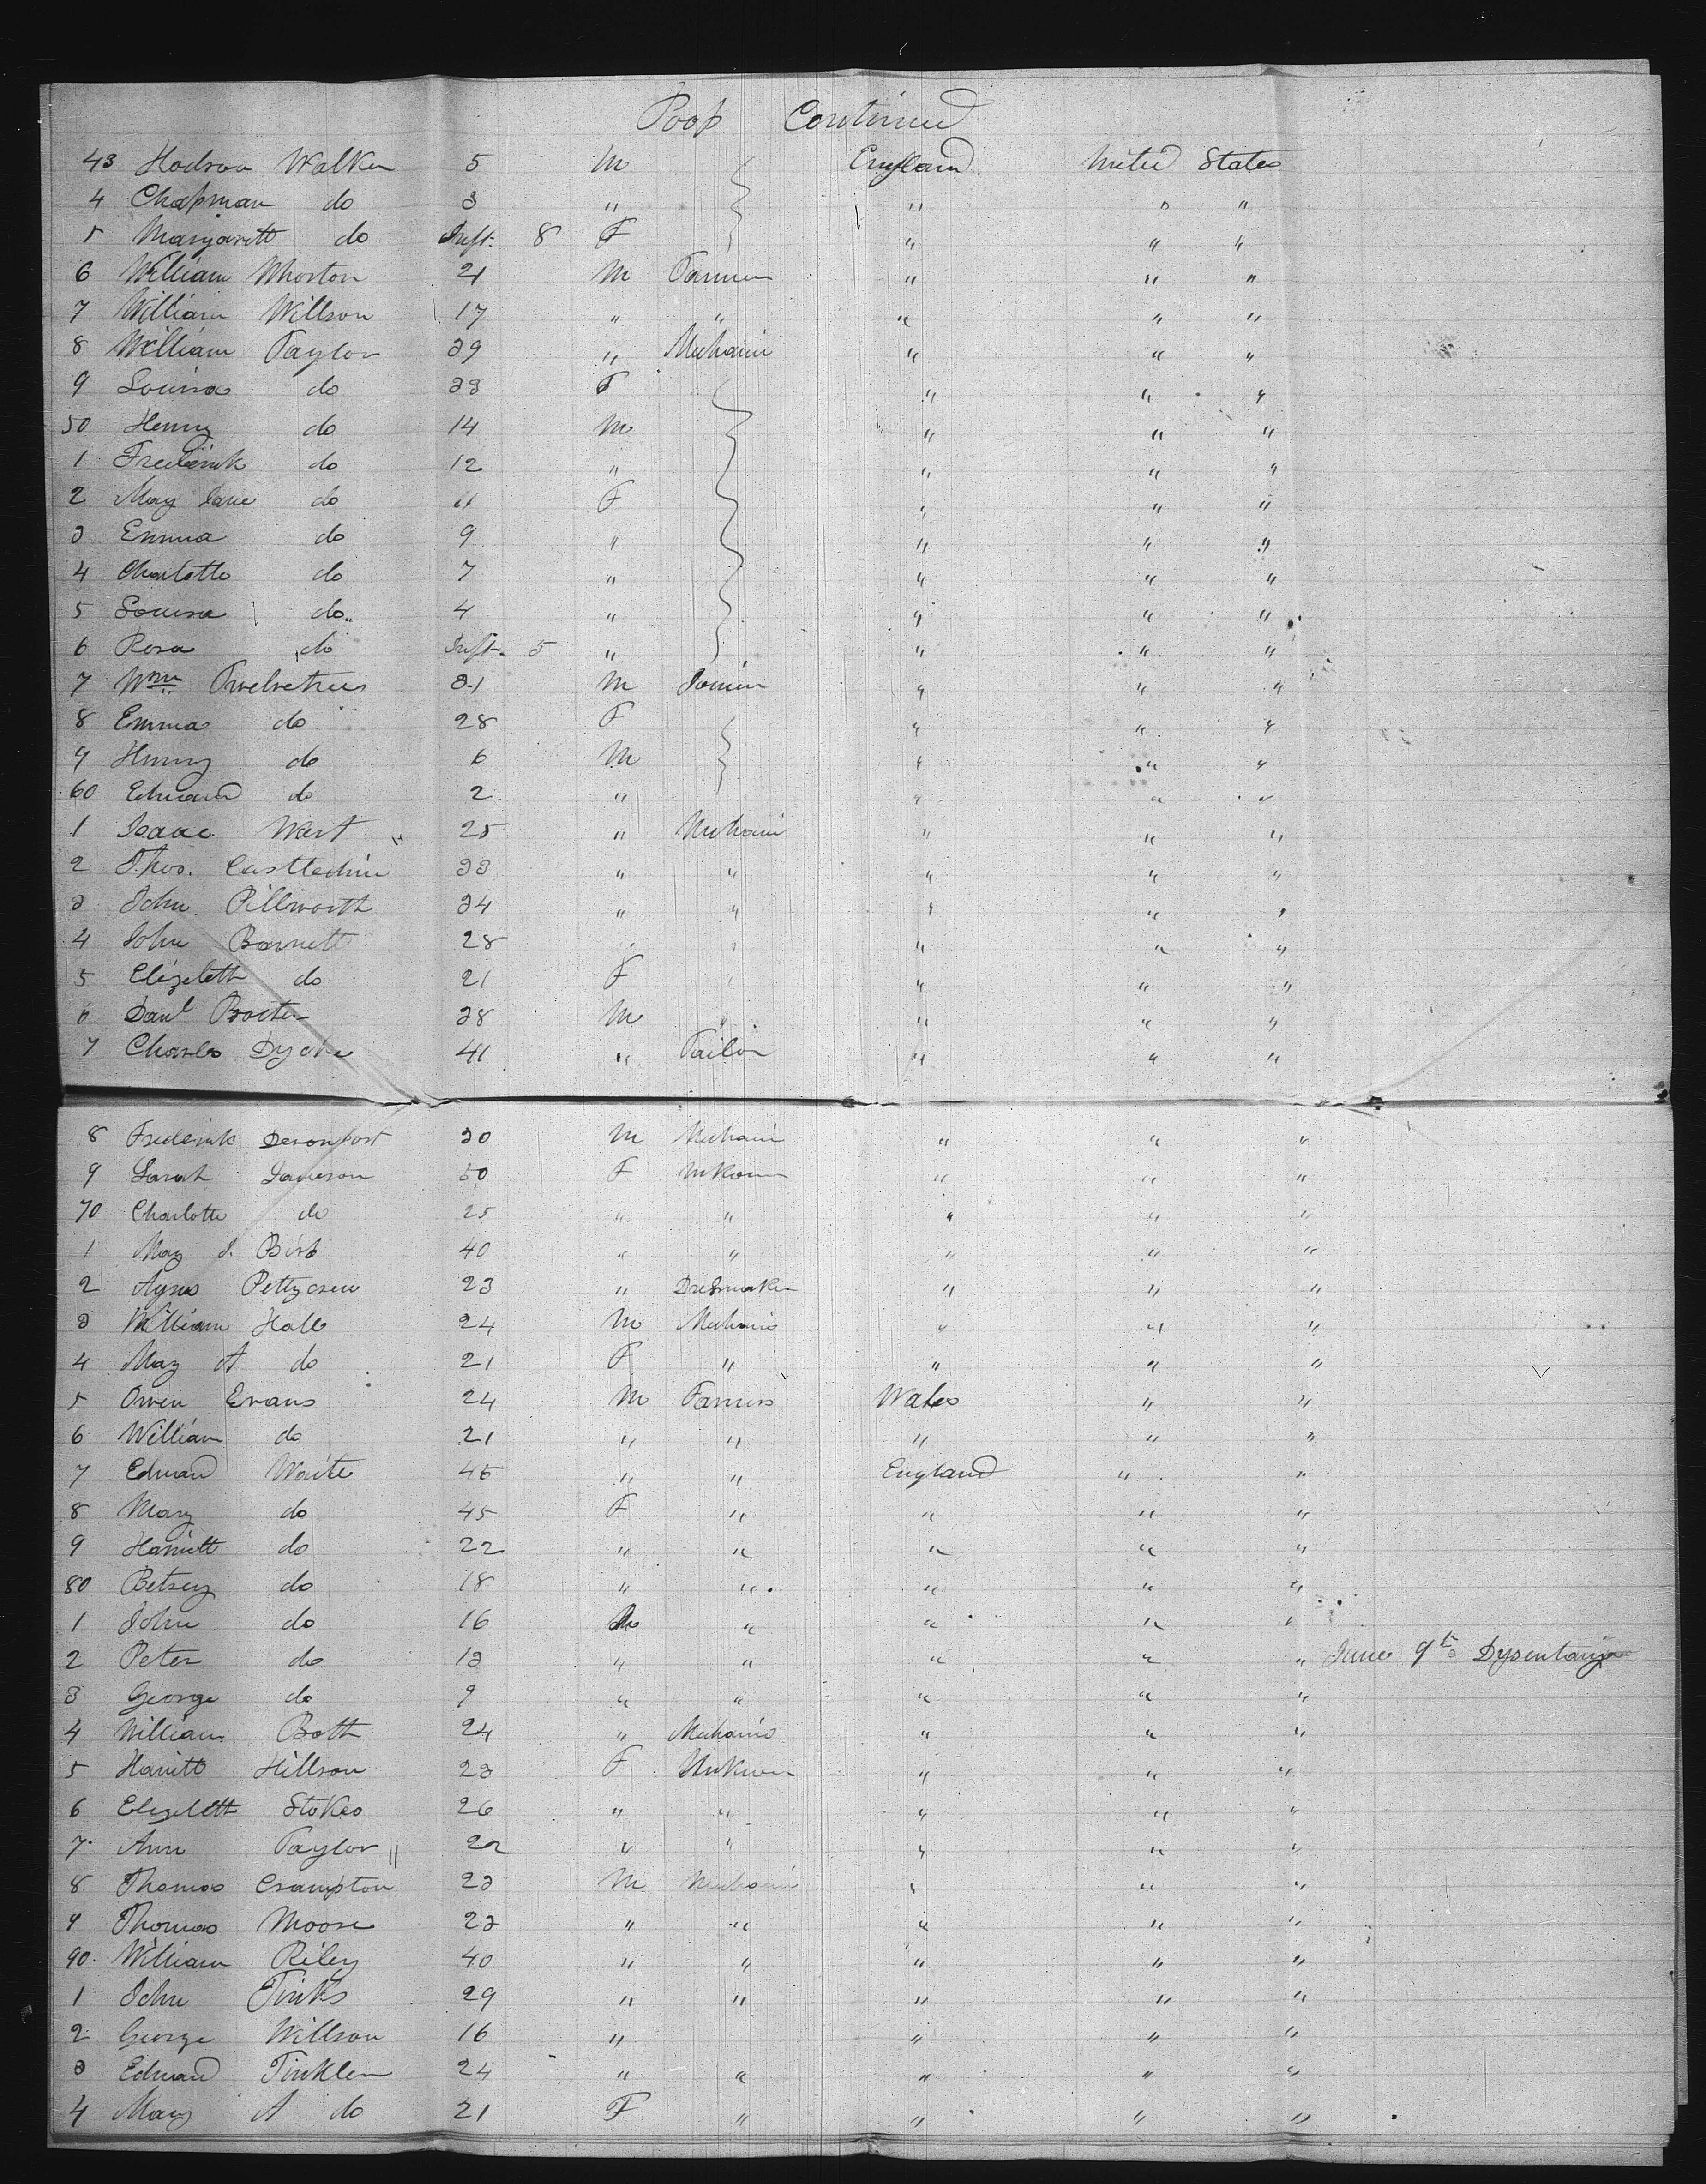 Poop Continued
43 Hodson Walker 5 M England United States
4 Chapman do 3 " " " "
5 Margarett do Inft. 8 F " " "
6 William Whorton 21 M Farmer " " "
7 William Willson 17 " " " " "
8 William Taylor 39 " Mechanic " " "
9 Louisa do 33 F " " "
50 Henry do 14 M " " "
1 Frederick do 12 " " " "
2 Mary Jane do 11 F " " "
3 Emma do 9 " " " "
4 Charlotte do 7 " " " "
5 Louisa do 4 " " " "
6 Rosa do Inft. 5 " " " "
7 Wm Twelvetrees 31 M Joiner " " "
8 Emma do 28 F " " "
9 Henry do 6 M " " "
60 Edward do 2 " " " "
1 Isaac West 25 " Mechanic " " "
2 Thos. 33 " " " " "
3 John Pillworth 34 " " " " "
4 John Barnett 28 " " " " "
5 Elizebeth do 21 F " " " "
6 Danl 38 M " " " "
7 Charles Dyche 41 " Tailor " " "
8 Frederick Devonport 30 M Mechanic " " "
9 Sarah Jameson 50 F Unknown " " "
70 Charlotte do 25 " " " " "
1 Mary 40 " " " " "
2 Agnes Pettycrew 23 " Dressmaker " " "
3 William Hall 24 M Mechanic " " "
4 Mary A do 21 F " " " "
5 Owen Evans 24 M Farmers Wales " "
6 William do 21 " " " " "
7 Edward Waite 45 " " England " "
8 Mary do 45 F " " " "
9 Harriett do 22 " " " " "
80 Betsey do 18 " " " " "
1 John do 16 M " " " "
2 Peter do 13 " " " " " June 9th Dysentary
3 George do 9 " " " " "
4 William Bott 24 " Mechanic " " "
5 Harriett Hillson 23 F Unknown " " "
6 Elizebeth Stokes 26 " " " " "
7 Ann Taylor 22 " " " " "
8 Thomas Crampton 23 M Mechanic " " "
9 Thomas Moore 23 " " " " "
90 William Riley 40 " " " " "
1 John Tinks 29 " " " " "
2 George Willson 16 " " " "
3 Edward Tinkler 24 " " " " "
4 Mary A do 21 F " " " "